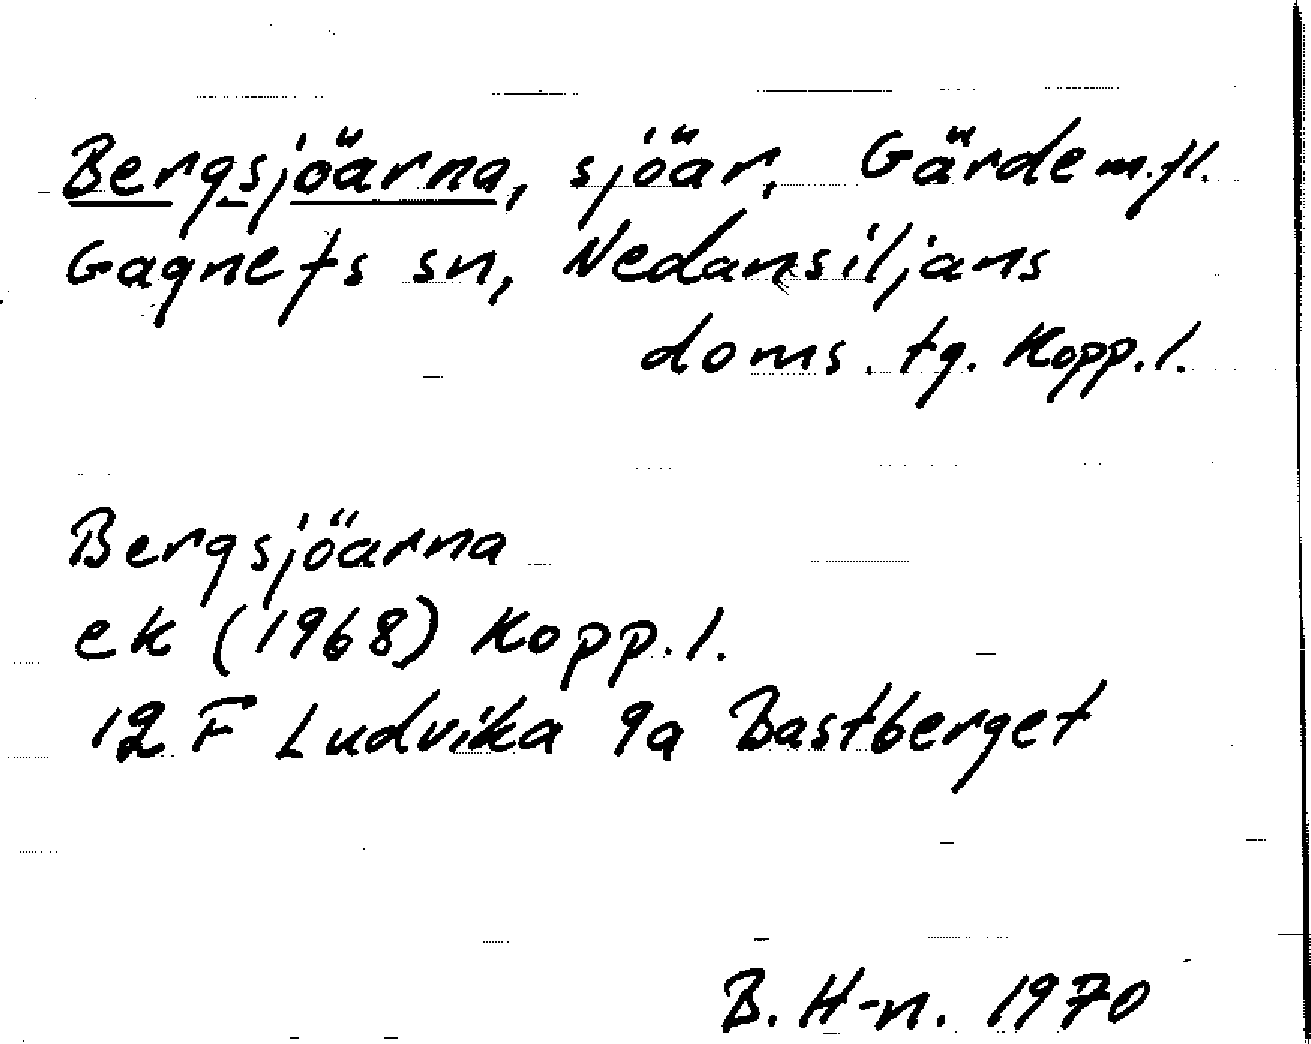 Bergsjöarna, sjöar, Gärde m.fl.
Gagnefs sn, Nedansiljans
doms. tg. Kopp.l.
Bergsjöarna
ek (1968) Kopp.l.
12 F Ludvika 9a Bastberget
B. H-n. 1970